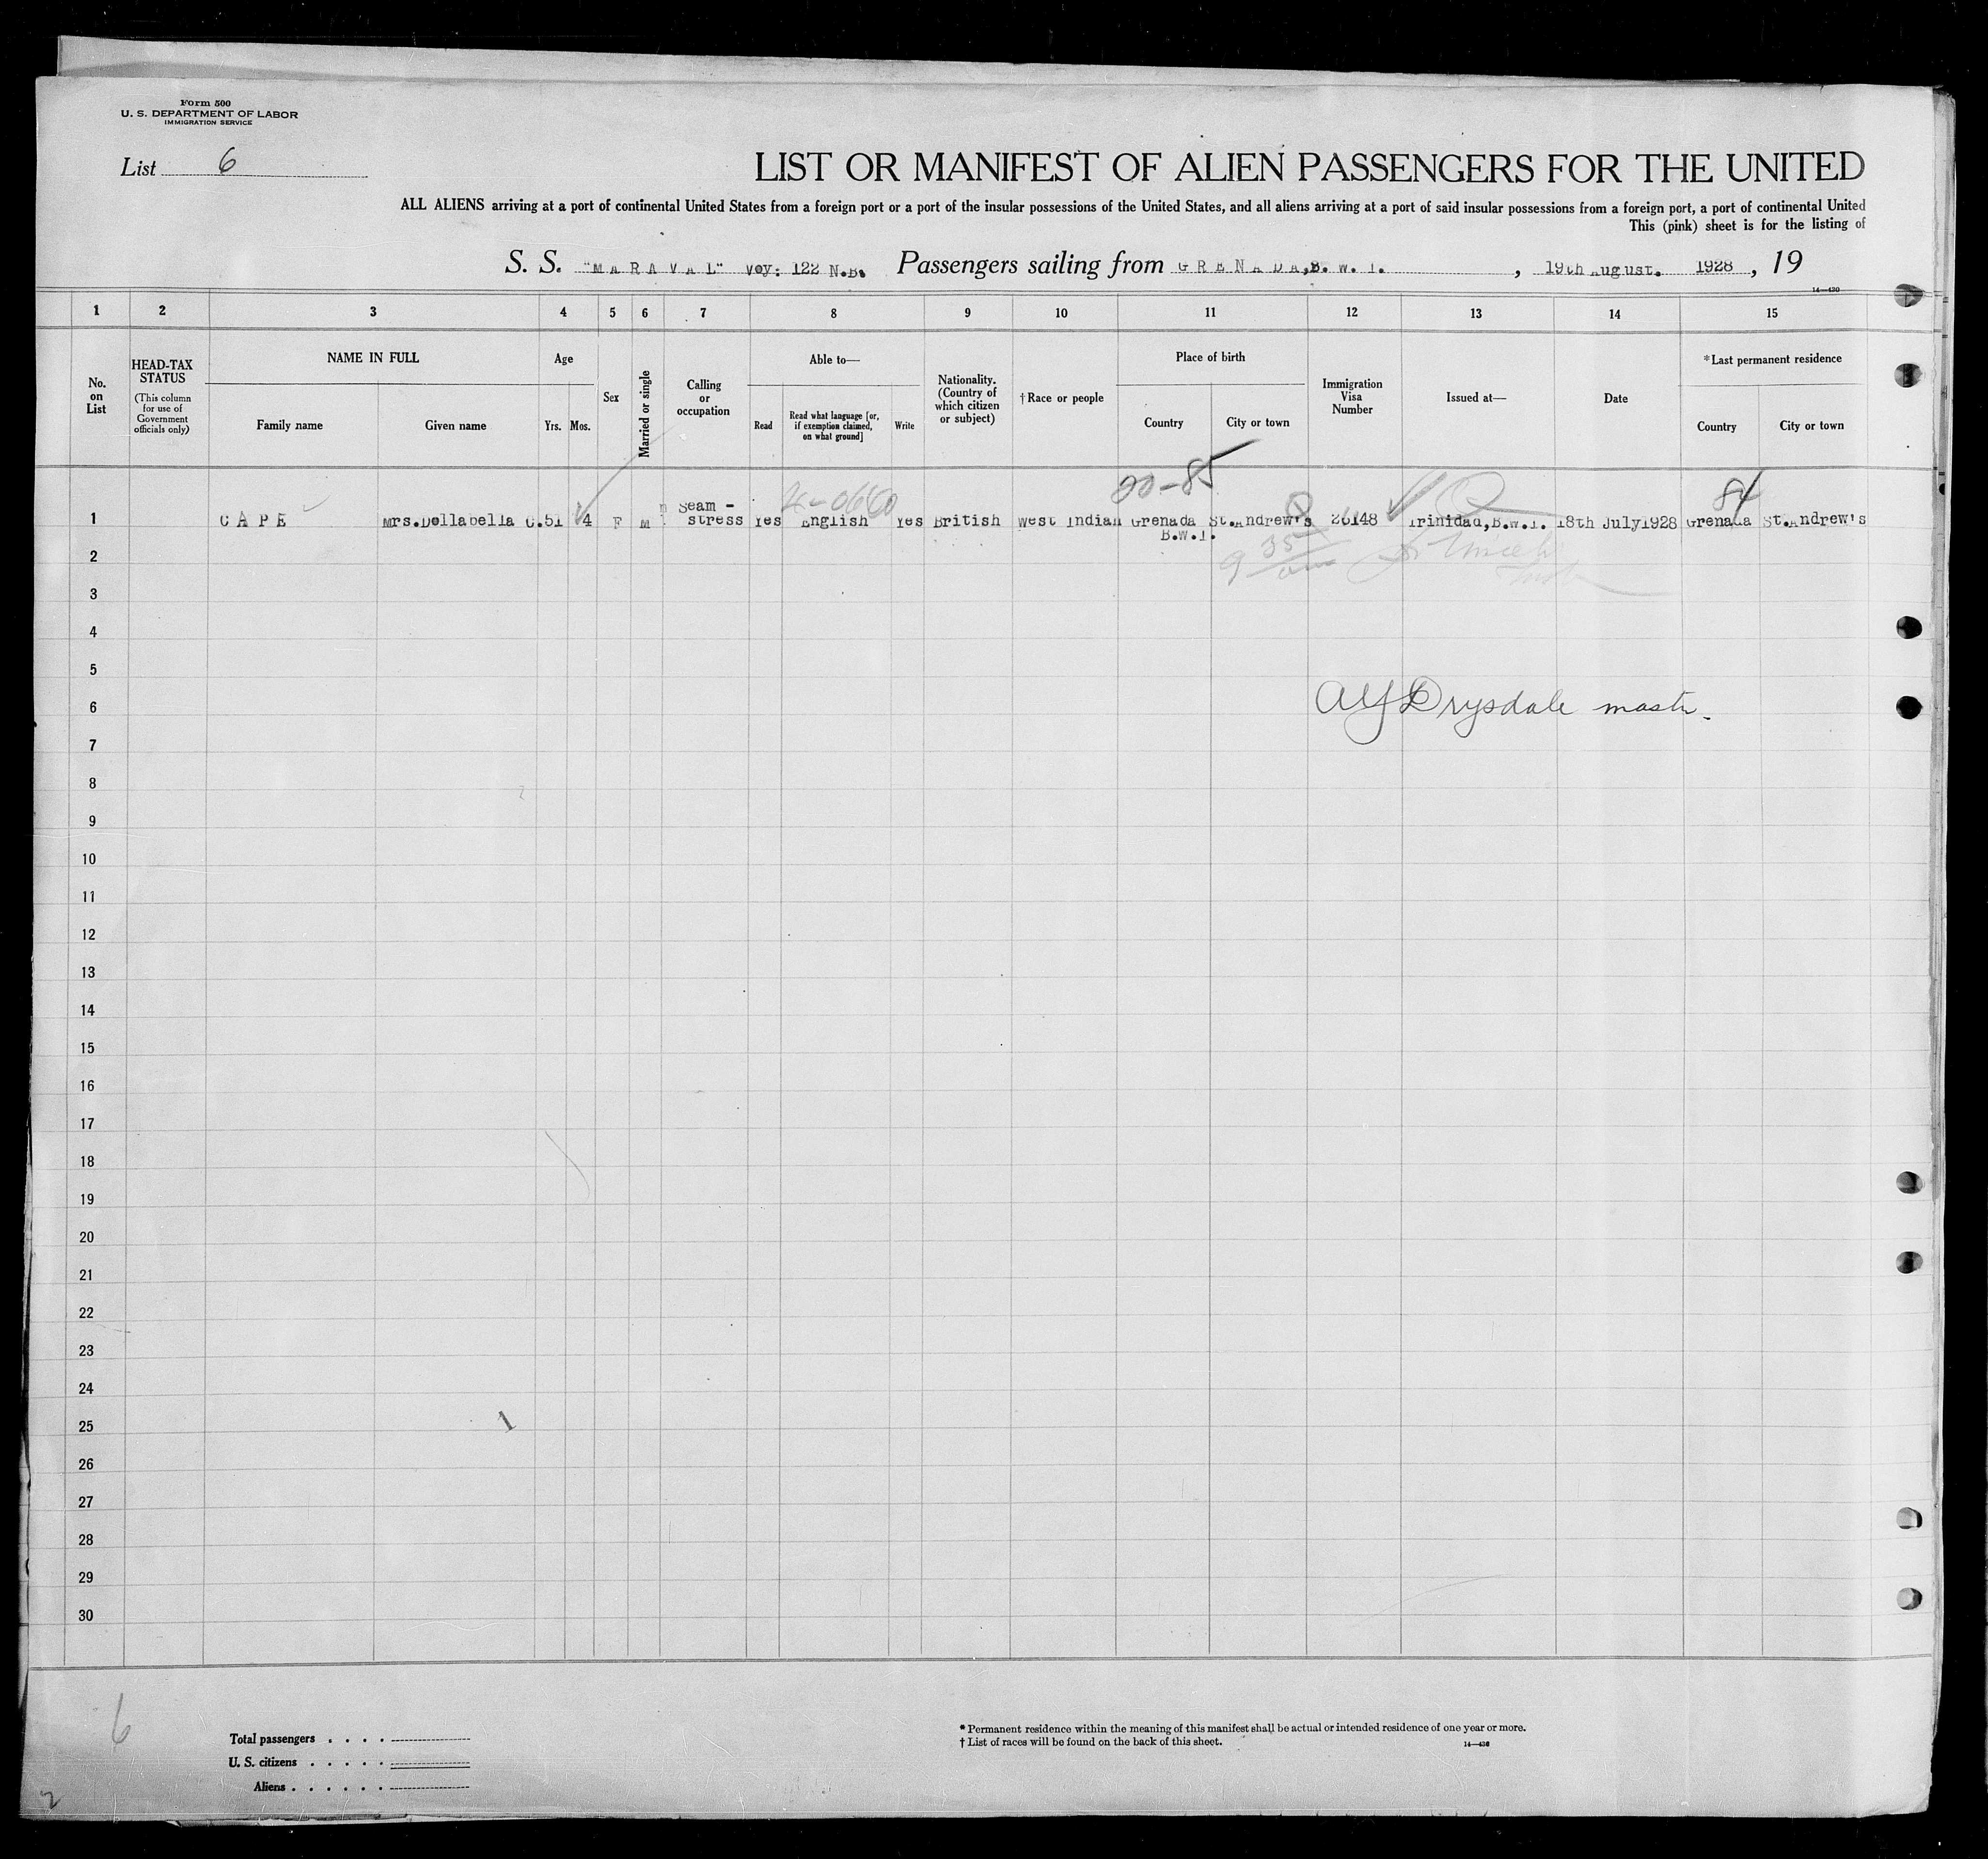 Form 500
U. S. DEPARTMENT OF LABOR
IMMIGRATION SERVICE
List 6
LIST OR MANIFEST OF ALIEN PASSENGERS FOR THE UNITED
ALL ALIENS arriving at a port of continental United States from a foreign port or a port of the insular possessions of the United States, and all aliens arriving at a port of said insular possessions from a foreign port, a port of continental United
This (pink) sheet is for the listing of
S. S. "MARAVAL" Voy: 122 N.B. Passengers sailing from GRENADA,B.W.I. , 19th August. 1928 , 19
14—430
1 2 3 4 5 6 7 8 9 10 11 12 13 14 15
No. on List
HEAD-TAX STATUS (This column for use of Government officials only)
NAME IN FULL
Family name Given name
Age
Yrs. Mos.
Sex
Married or single
Calling or occupation
Able to—
Read Read what language [or, if exemption claimed, on what ground] Write
Nationality. (Country of which citizen or subject)
†Race or people
Place of birth
Country City or town
Immigration Visa Number
Issued at—
Date
*Last permanent residence
Country City or town
20-85 84
1 CAPE Mrs.Dellabella C. 51 4 F M Seam-stress Yes English Yes British West Indian Grenada B.W.I. St.Andrew's 26148 Trinidad,B.W.I. 18th July1928 Grenada St.Andrew's
9 35 am
2
3
4
5
6
Drysdale master.
7
8
9
10
11
12
13
14
15
16
17
18
19
20
21
22
23
24
25
1
26
27
28
29
30
6
Total passengers . . . .
U. S. citizens . . . . .
Aliens . . . . . .
* Permanent residence within the meaning of this manifest shall be actual or intended residence of one year or more.
† List of races will be found on the back of this sheet.
14—430
2